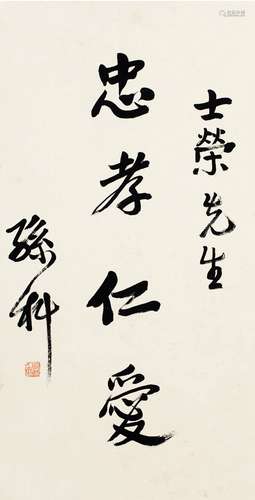 士榮先生
忠孝仁愛
孫科